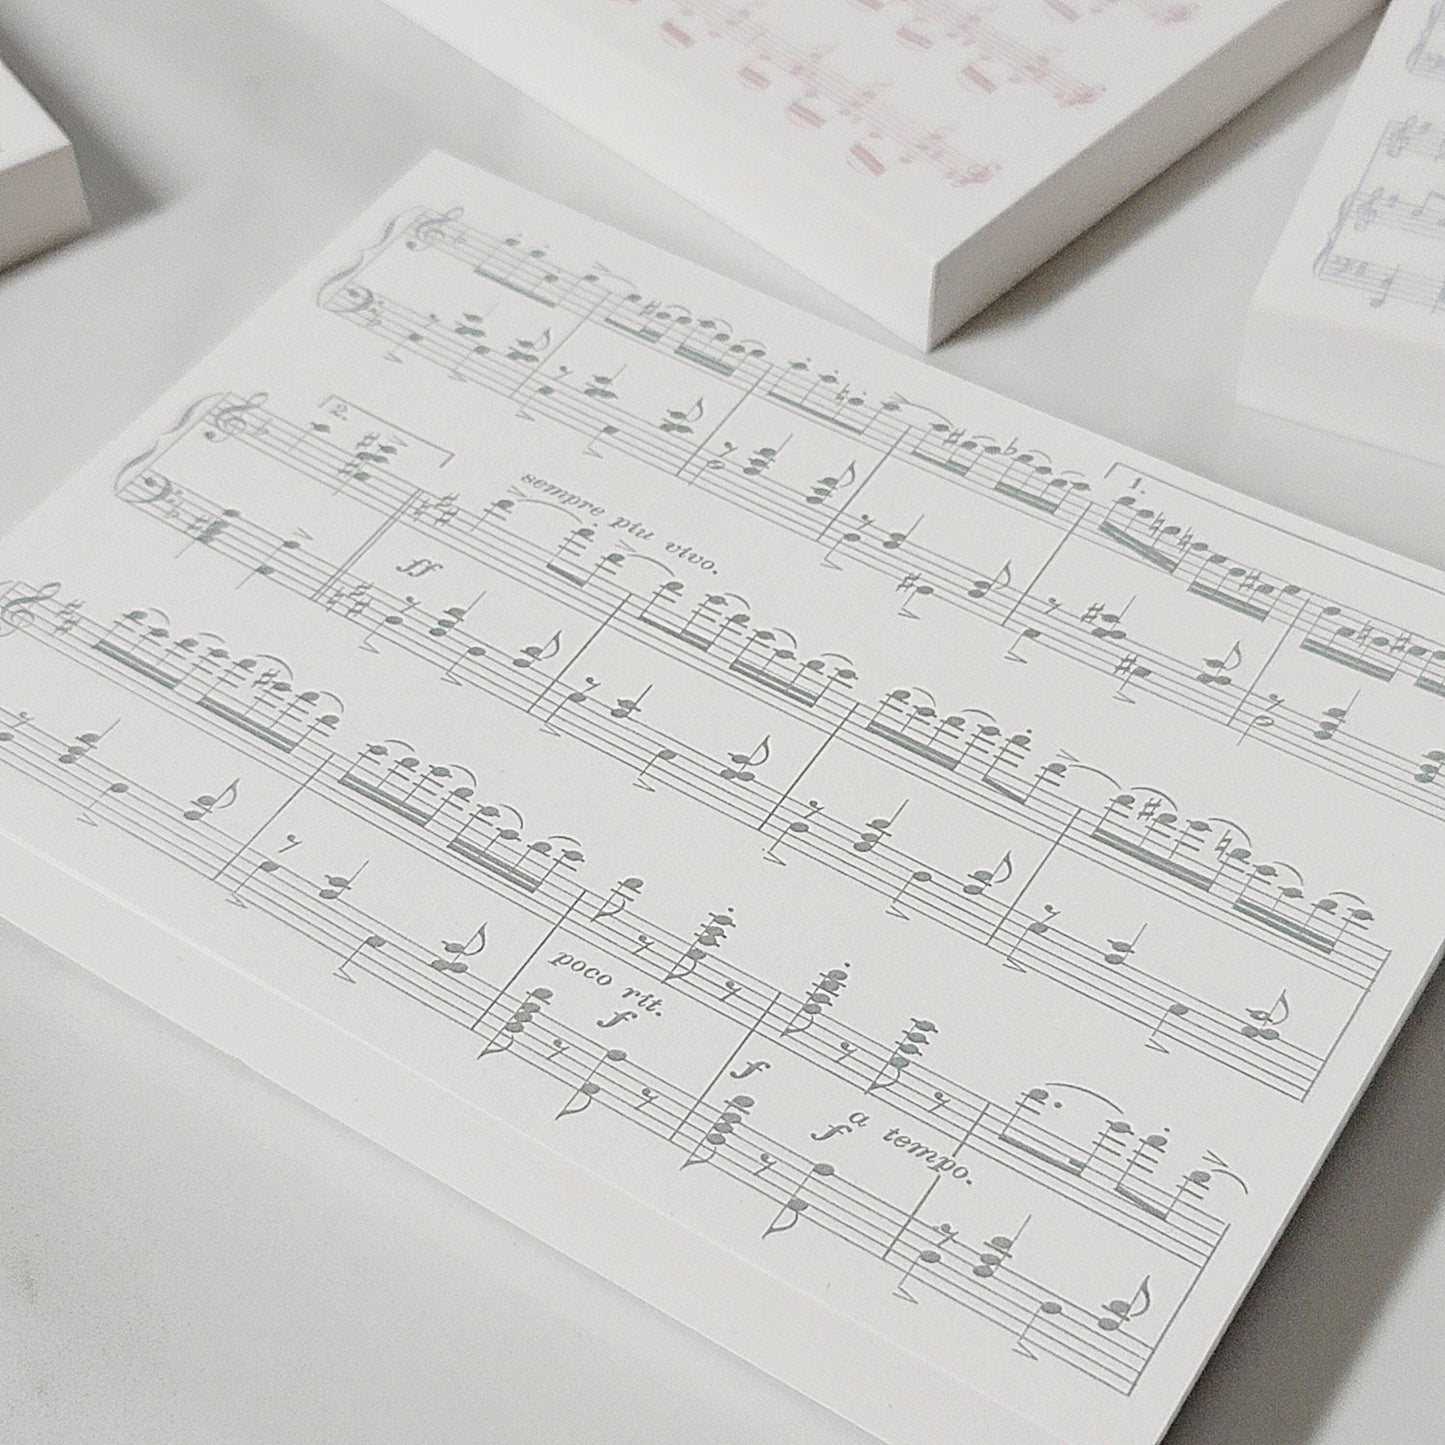 1.
2.
sempre piu vivo.
ff
poco rit.
f
f
f
a tempo.